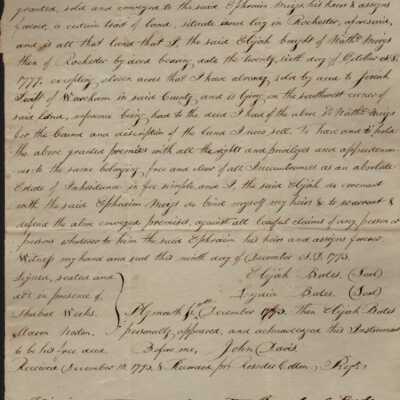 granted, sold and conveyed to the said Ephraim Meigs his heirs & assigns
forever, a certain tract of land, situate and lying in Rochester, aforesaid,
and is all that land that I, the said Elijah bought of Nath.l Meigs
then of Rochester by deed bearing date the twenty sixth day of October A.D.
1777, excepting eleven acres that I have already sold by deed to Josiah
Swift of Wareham in said County and is lying on the southwest corner of
said land, reference being had to the deed I had of the above sd Nath.l Meigs
for the bounds and discription of the land I now sell. To have and to hold
the above granted premises with all the rights and privileges and appurtenan-
ces to the same belonging free and clear of all Incumbrances as an absolute
Estate of Inheritance in fee simple, and I, the said Elijah do covenant
with the said Ephraim Meigs do bind myself my heirs & to warrant &
defend the above conveyed premises, against all lawful claims of any person or
persons whatsoever to him the said Ephraim his heirs and assigns forever.
Witness my hand and seal this ninth day of December A.D. 1793.
Signed, sealed and Elijah Bates. (Seal)
dd. in presence of Bates. (Seal)
Weeks. Plymouth ss. December 1793. Then Elijah Bates
personally appeared, and acknowledged this Instrument
to be his free deed. Before me, John Davis.
Received December 12. 1793. & Recorded per Rossiter Cotton, Regr.